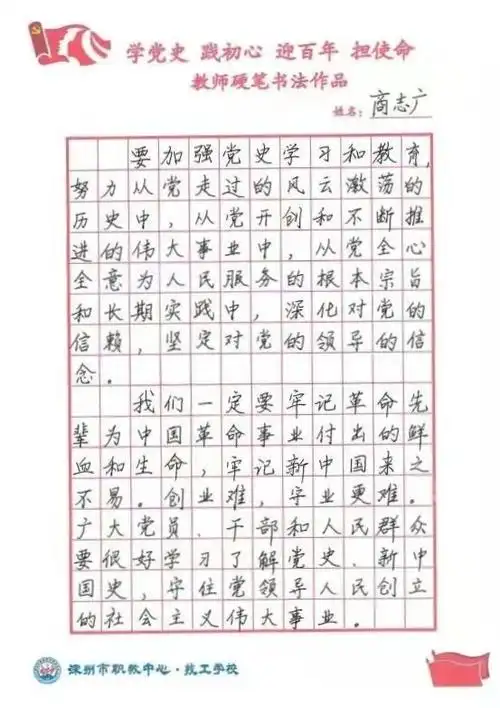 学党史 践初心 迎百年 担使命
教师硬笔书法作品
姓名：商志广
要加强党史学习和教育，
努力从党走过的风云激荡的
历史中，从党开创和不断推
进的伟大事业中，从党全心
全意为人民服务的根本宗旨
和长期实践中，深化对党的
信赖，坚定对党的领导的信
念。
我们一定要牢记革命先
辈为中国革命事业付出的鲜
血和生命，牢记新中国来之
不易。创业难，守业更难。
广大党员、干部和人民群众
要很好学习了解党史、新中
国史，守住党领导人民创立
的社会主义伟大事业。
深州市职教中心·技工学校